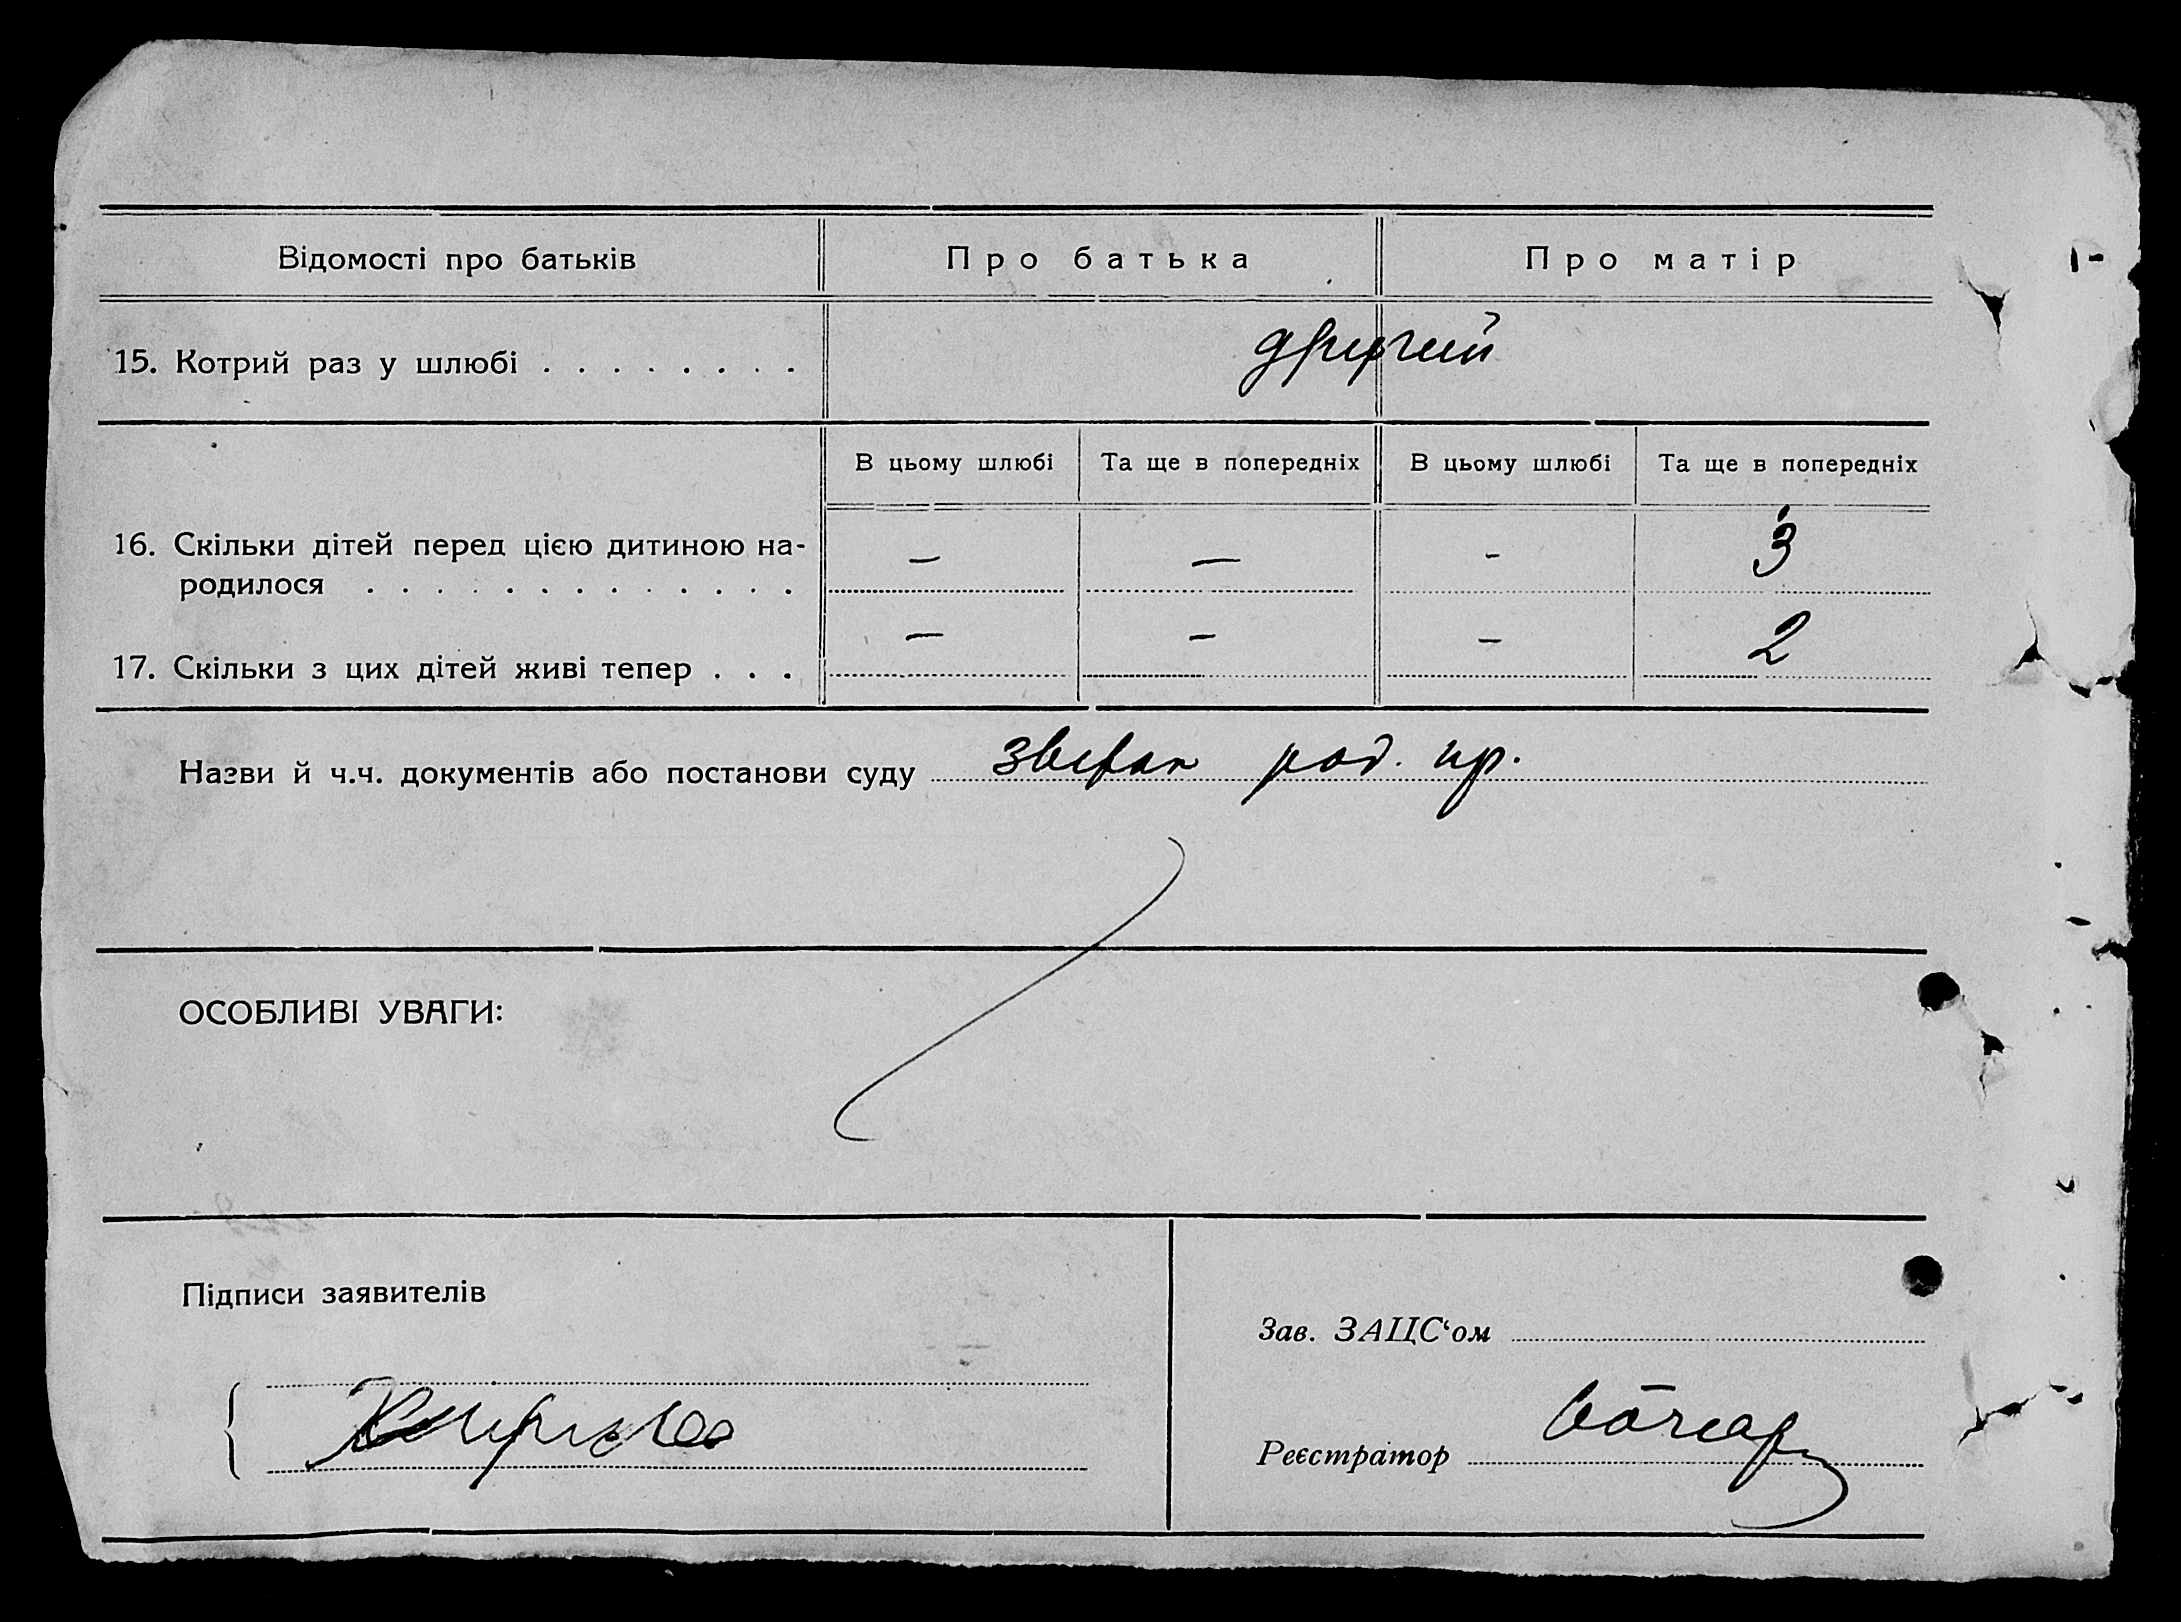 Відомості про батьків Про батька Про матір
15. Котрий раз у шлюбі . . . . . . . . другий
В цьому шлюбі Та ще в попередніх В цьому шлюбі Та ще в попередніх
16. Скільки дітей перед цією дитиною на-
родилося . . . . . . . . . . . . . — — - 3
17. Скільки з цих дітей живі тепер . . . — — - 2
Назви й ч.ч. документів або постанови суду род. пр.
ОСОБЛИВІ УВАГИ:
Підписи заявителів
Зав. ЗАЦС‘ом
Реєстратор